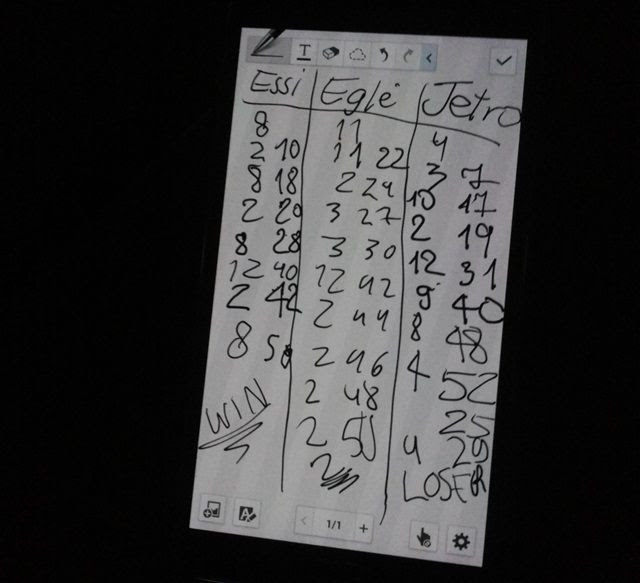 T
Essi Eglė Jetro
8 11 4
2 10 11 22 3 7
8 18 2 24 10 17
2 20 3 27 2 19
8 28 3 30 12 31
12 40 12 42 9 40
2 42 2 44 8 48
8 50 2 46 4 52
2 48 25
WIN 2 50 4 29
LOSER
1/1 +